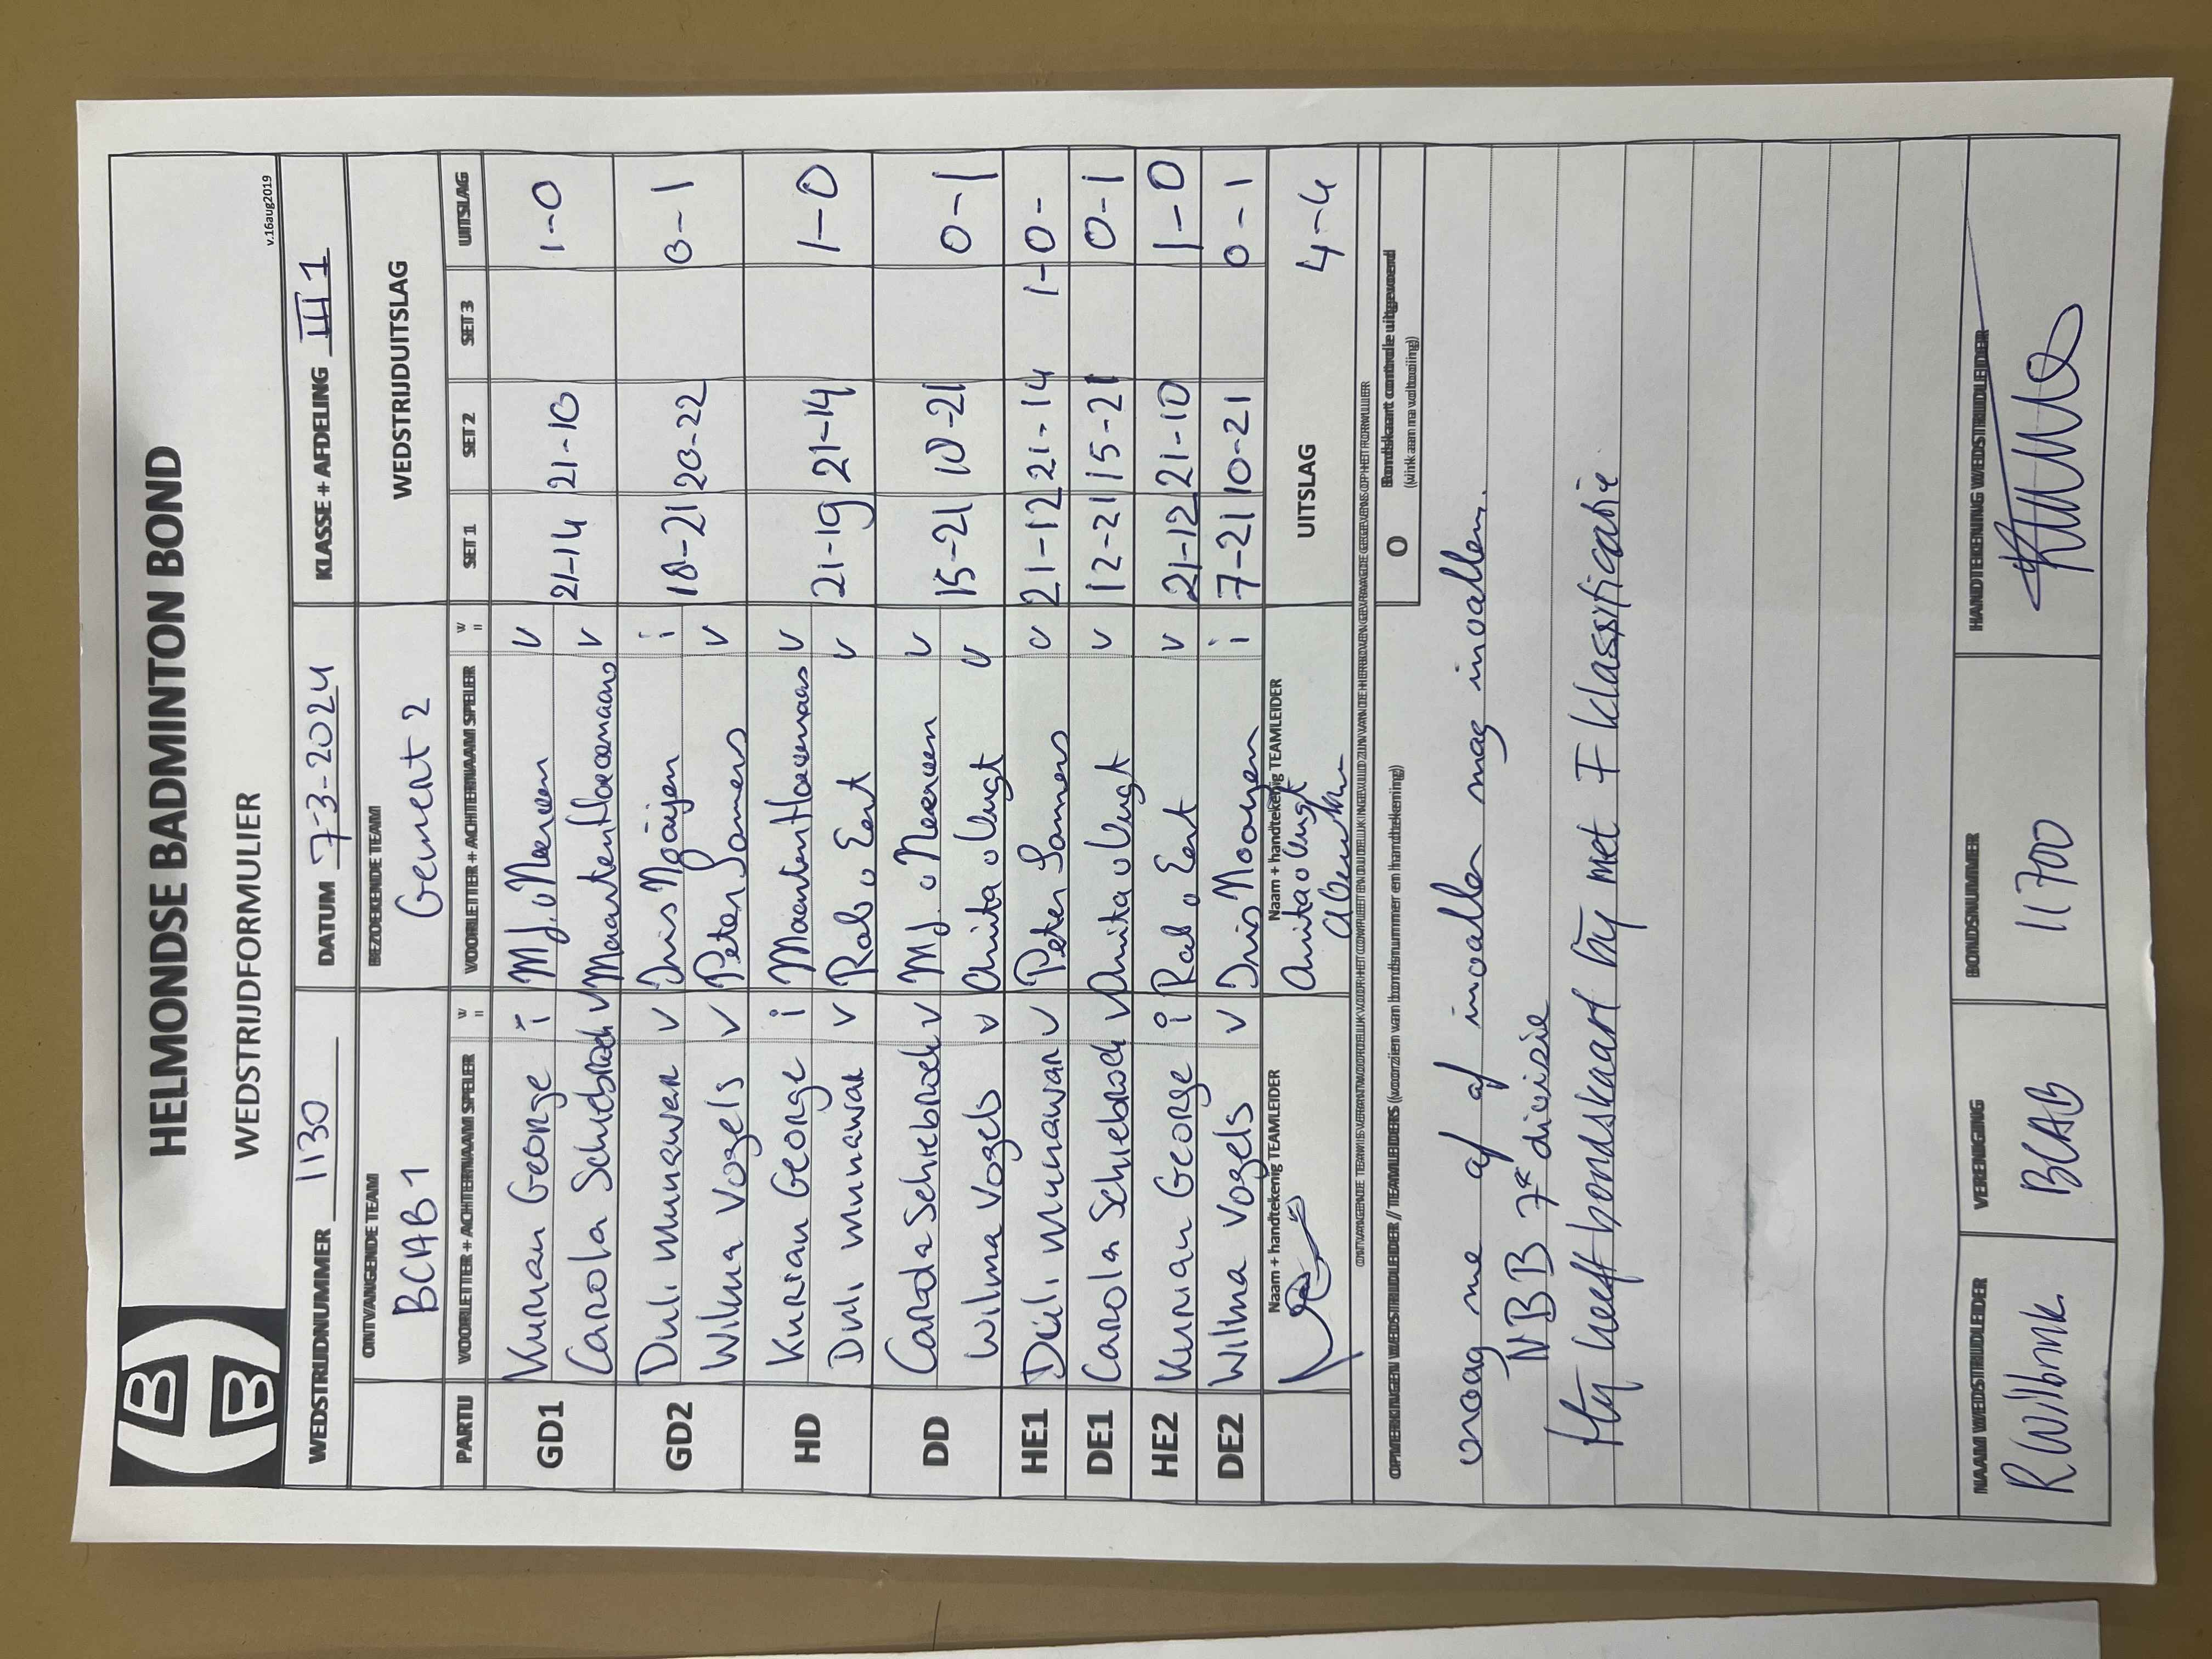 HELMONDSE BADMINTON BOND
WEDSTRIJDFORMULIER
v.16aug2019
WEDSTRIJDNUMMER 1130 DATUM 7-3-2024 KLASSE + AFDELING III 1
ONTVANGENDE TEAM BEZOEKENDE TEAM WEDSTRIJDUITSLAG
BCAB 1 Gement 2
PARTIJ VOORLETTER + ACHTERNAAM SPELER VOORLETTER + ACHTERNAAM SPELER SET 1 SET 2 SET 3 UITSLAG
GD1 Kurian George i MJ. v Neerven v
Carola Schiebroek v Maarten v 21-14 21-10 1-0
GD2 Duli Munawar v Iris Mooijen i
Wilma Vogels v Peter Somers v 18-21 20-22 0-1
HD Kurian George i Maarten v
Duli Munawar v Rob v Eert v 21-19 21-14 1-0
DD Carola Schiebroek v MJ. v Neerven v
Wilma Vogels v Anita v Vugt v 15-21 18-21 0-1
HE1 Duli Munawar v Peter Somers v 21-12 21-14 1-0-
DE1 Carola Schiebroek v Anita v Vugt v 12-21 15-21 0-1
HE2 Kurian George i Rob v Eert v 21-12 21-10 1-0
DE2 Wilma Vogels v Iris Mooijen i 7-21 10-21 0-1
Naam + handtekenig TEAMLEIDER Naam + handtekenig TEAMLEIDER UITSLAG 4-4
Anita v Vugt
OPMERKINGEN WEDSTRIJDLEIDER / TEAMLEIDERS (voorzien van bondsnummer en handtekening)
O Bondskaart controle uitgevoerd
(vink aan na voltooiing)
vraag me af of invaller mag invallen.
NBB 7e divisie
Hij heeft bondskaart bij met F klassificatie
NAAM WEDSTRIJDLEIDER VERENIGING BONDSNUMMER HANDTEKENING WEDSTRIJDLEIDER
R Wilbrink BCAB 11700